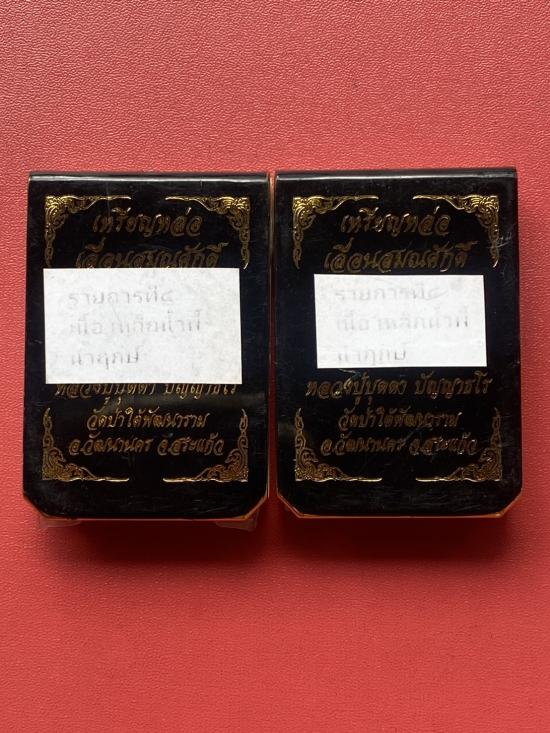 เหรียญหล่อ
เลื่อนสมณศักดิ์
รายการที่๔
เนื้อ
นำฤกษ์
หลวงปู่บุดดา ปัญญาธโร
วัดป่าใต้พัฒนาราม
อ.วัฒนานคร จ.สระแก้ว
เหรียญหล่อ
เลื่อนสมณศักดิ์
รายการที่๔
เนื้อ
นำฤกษ์
หลวงปู่บุดดา ปัญญาธโร
วัดป่าใต้พัฒนาราม
อ.วัฒนานคร จ.สระแก้ว